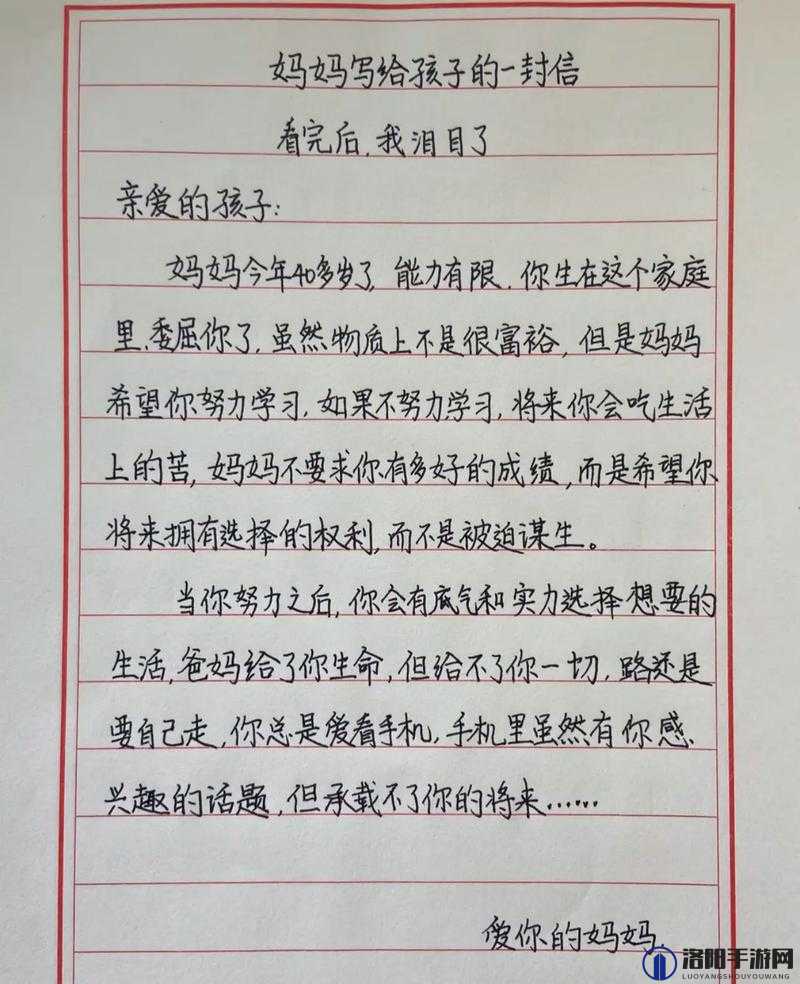 妈妈写给孩子的一封信
看完后,我泪目了
亲爱的孩子:
妈妈今年40多岁了,能力有限.你生在这个家庭
里,委屈你了,虽然物质上不是很富裕,但是妈妈
希望你努力学习,如果不努力学习,将来你会吃生活
上的苦,妈妈不要求你有多好的成绩,而是希望你
将来拥有选择的权利,而不是被迫谋生。
当你努力之后,你会有底气和实力选择想要的
生活,爸妈给了你生命,但给不了你一切,路还是
要自己走,你总是爱看手机,手机里虽然有你感
兴趣的话题,但承载不了你的将来……
爱你的妈妈
洛阳手游网
LUOYANGSHOUYOUWANG